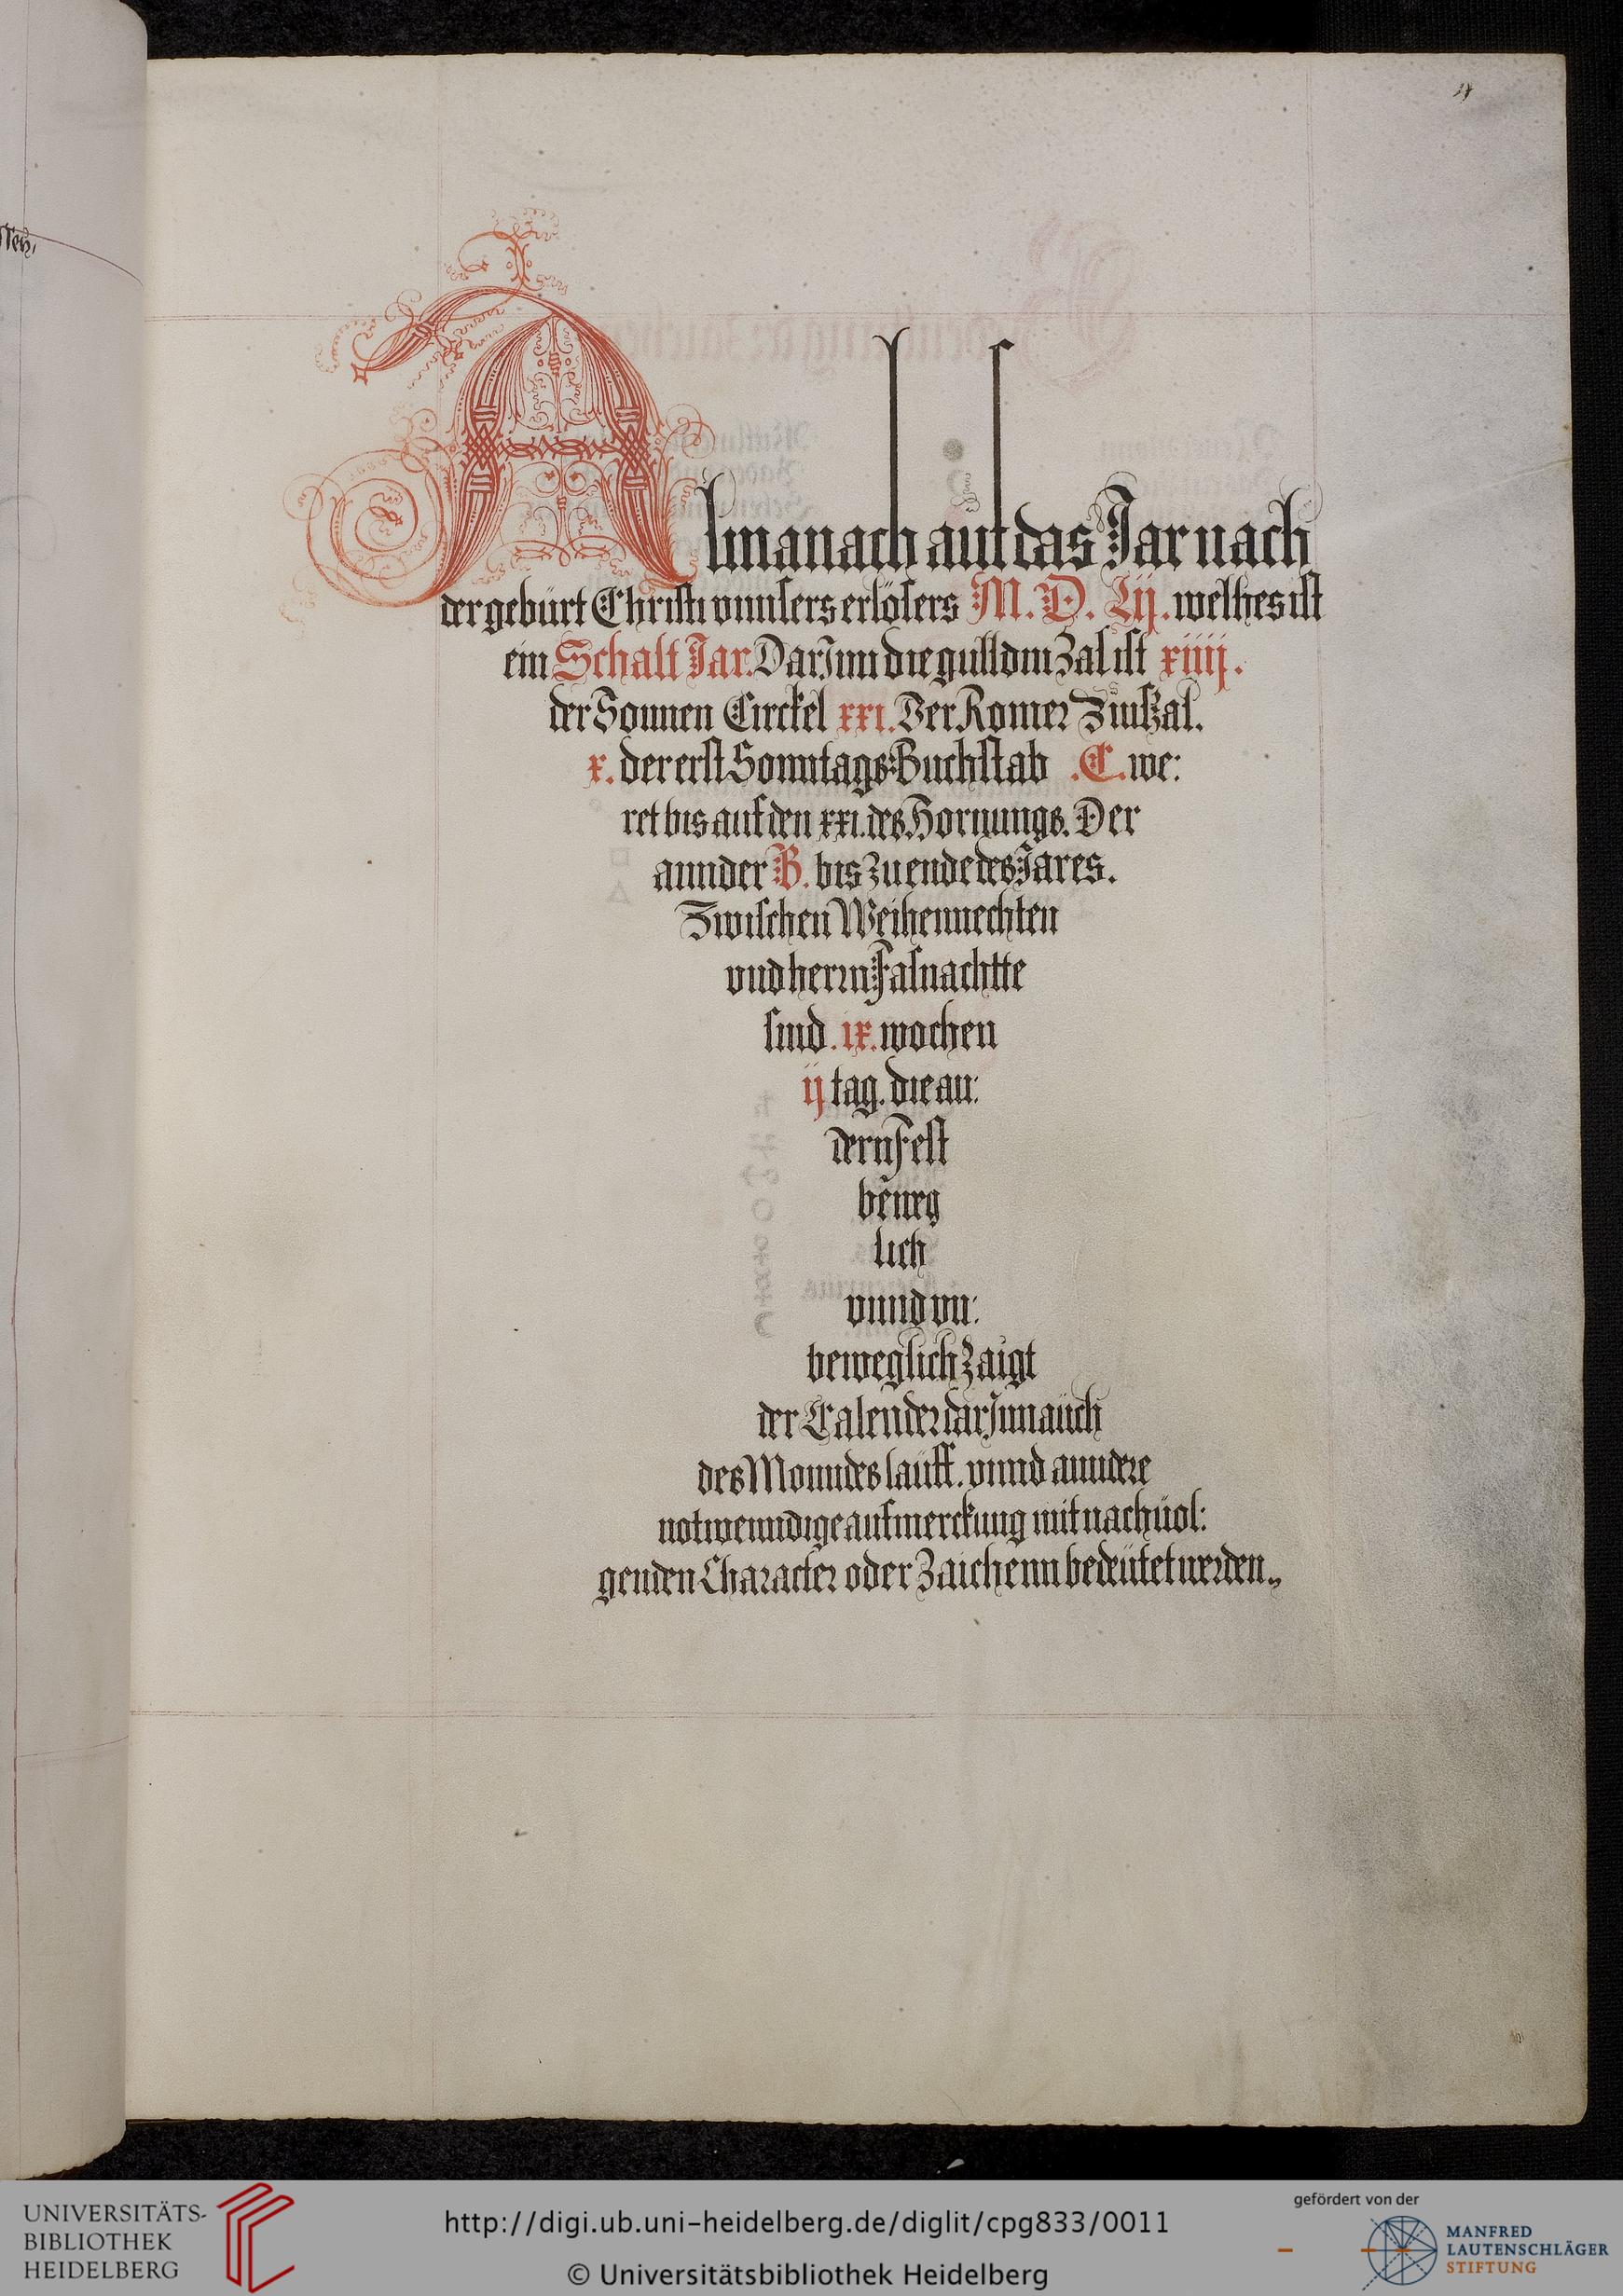 Almanach auf das Jar nach
der gebürt Christi vnnsers erlösers M. D. Lij. welhes ist
ein Schalt Jar. Darjnn die gulldin Zal ist xiiij.
der Sonnen Circkel xxi. Der Romer Zinßzal.
x. der erst Sonntags Buchstab .C. we:
ret bis auf den xxi. des Hornungs. Der
annder B. bis zu ende des Jares.
Zwischen Weihennechten
vnd herrn Fasnachtte
sind .ix. wochen
ij tag. die an:
dern Fest
beweg
lich
vnnd vn:
beweglich Zaigt
der Calender darjnn aůch
des Monndes laůff. vnnd anndere
notwenndige aufmerckung mit nachůol:
genden Character oder Zaichenn bedeůtet werden.
UNIVERSITÄTS-
BIBLIOTHEK
HEIDELBERG
http://digi.ub.uni-heidelberg.de/diglit/cpg833/0011
© Universitätsbibliothek Heidelberg
gefördert von der
MANFRED
LAUTENSCHLÄGER
STIFTUNG